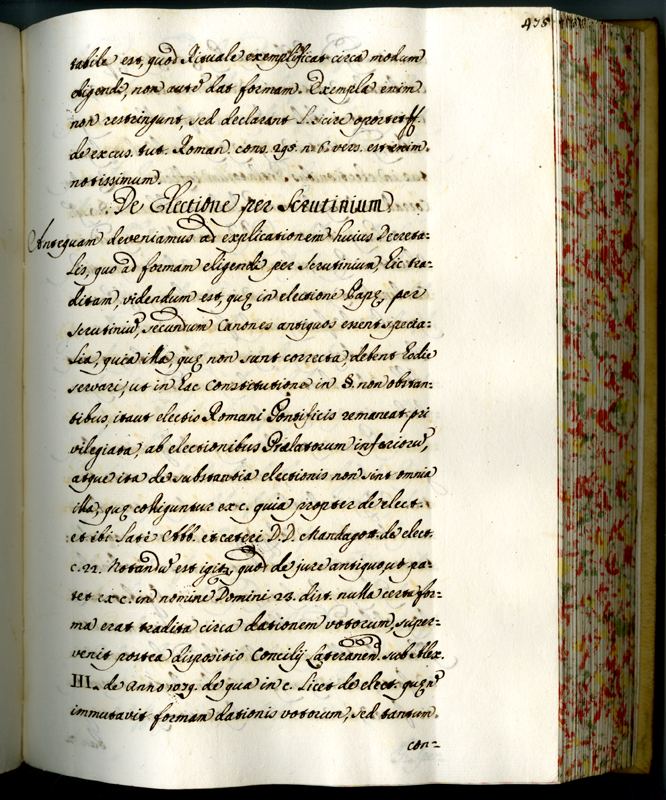 475
tabile est, quod Rituale exemplificat circa modum
eligendi, non autē dat formam. Exempla enim
non restringunt, sed declarant L. scire oportet ff.
de excus. tut. Roman. cons. 295. n. 6. vers. est enim
notissimum.
De Electione per Scrutinium.
Antequam deveniamus ad explicationem huius Decreta-
lis, quo ad formam eligendi per scrutinium, hic tra-
ditam, videndum est, quę in electione Papę, per
scrutiniū, secundum Canones antiquos essent specia-
lia, quia illa, quę non sunt correcta, debent hodie
servari, ut in hac Constitutione in §. non obstan-
tibus, itaut electio Romani Pontificis remaneat pri
vilegiata, ab electionibus Prælatorum inferiorū,
atque ita de substantia electionis non sint omnia
illa, quę colliguntur ex c. quia propter de elect.
et ibi late Abb. et cæteri D.D. Mandagott. de elect.
c. 22. Notandū est igitr, quod de jure antiquo, ut pa-
tet ex c. in nomine Domini 23. dist. nulla certa for-
ma erat tradita circa dationem votorum, super-
venit postea dispositio Concilij Lateranen. sub Alex.
III. de Anno 1079. de qua in c. Licet de elect. quę nō
immutavit formam dationis votorum, sed tantum
con-